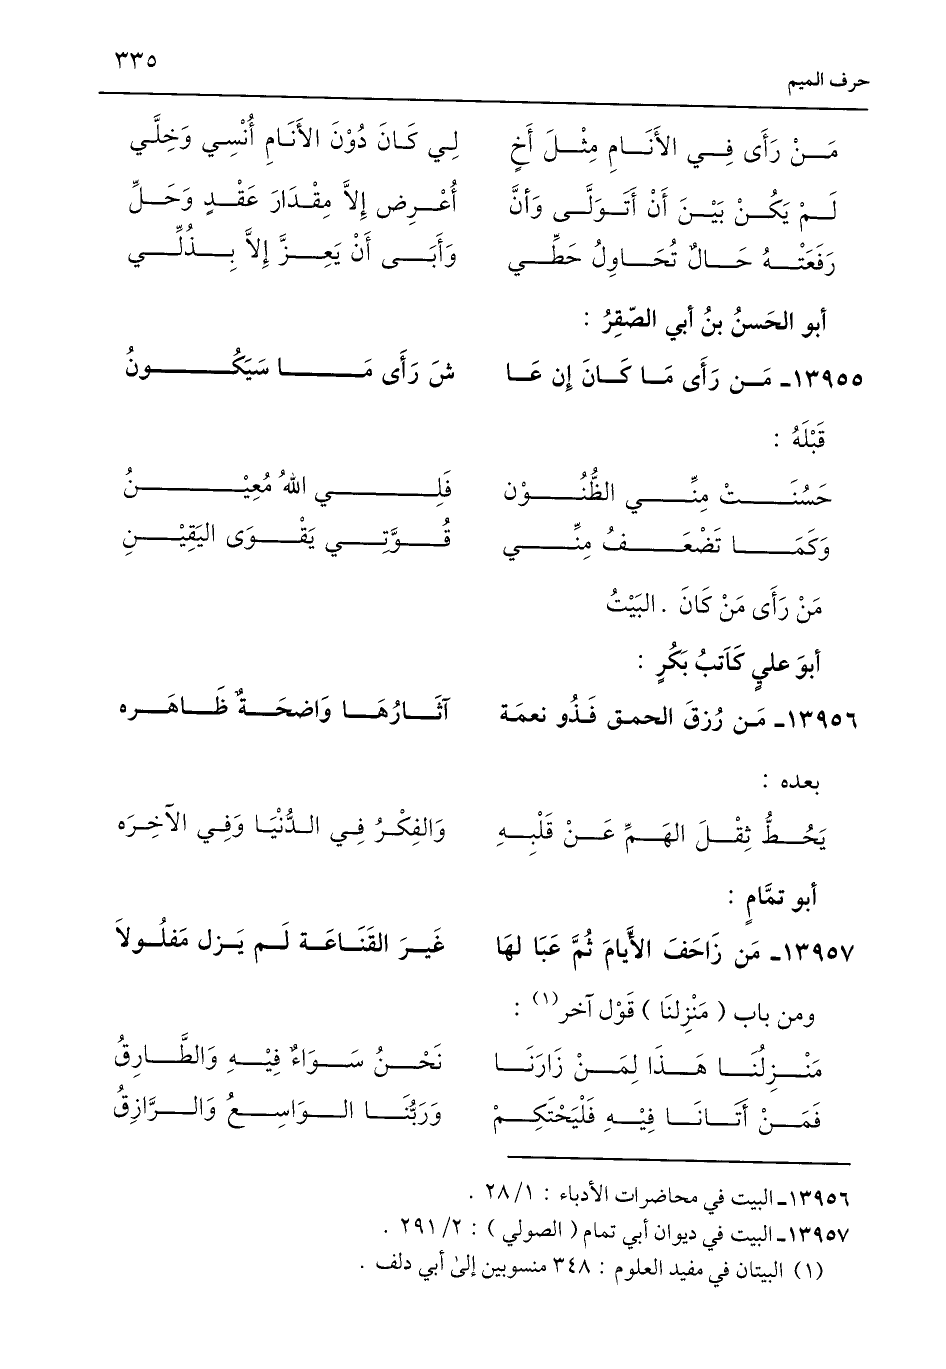 ٣٣٥
حرف الميم
مَنْ رَأَى فِي الأَنَامِ مِثْلَ أَخٍ لِي كَانَ دُوْنَ الأَنَامِ أُنْسِي وَخِلَّي
لَمْ يَكُنْ بَيْنَ أَنْ أَتَوَلَّى وَأنَّ أُعْرِض إِلاَّ مِقْدَارَ عَقْدٍ وَحَلِّ
رَفَعَتْهُ حَالٌ تُحَاوِلُ حَطِّي وَأَبَى أَنْ يَعِزَّ إِلاَّ بِذُلِّي
أبو الحَسنُ بنُ أبي الصّقِرُ :
١٣٩٥٥ـ مَن رَأَى مَا كَانَ إن عَا شَ رَأَى مَا سَيَكُونُ
قَبْلَهُ :
حَسُنَتْ مِنِّي الظُّنُوْن فَلِي اللهُ مُعِيْنُ
وَكَمَا تَضْعَفُ مِنِّي قُوَّتِي يَقْوَى اليَقِيْنِ
مَنْ رَأَى مَنْ كَانَ . البَيْتُ
أبوَ عليٍ كَاَتبُ بَكُرٍ :
١٣٩٥٦ـ مَن رُزقَ الحمق فَذُو نعمَة آثَارُهَا وَاضحَةٌ ظَاهَره
بعده :
يَحُطُّ ثِقْلَ الهَمِّ عَنْ قَلْبِهِ وَالفِكْرُ فِي الدُّنْيَا وَفِي الآخِرَه
أبو تمَّامٍ :
١٣٩٥٧ـ مَن زَاحَفَ الأَيامَ ثُمَّ عَبَا لهَا غَيرَ القَنَاعَة لَم يَزل مَفلُولاَ
ومن باب ( مَنْزِلنَا ) قَوْل آخر(١) :
مَنْزِلُنَا هَذَا لِمَنْ زَارَنَا نَحْنُ سَوَاءٌ فِيْهِ وَالطَّارِقُ
فَمَنْ أَتَانَا فِيْهِ فَلْيَحْتَكِمْ وَرَبُّنَا الوَاسِعُ وَالرَّازِقُ
١٣٩٥٦ـ البيت في محاضرات الأدباء : ٢٨/١ .
١٣٩٥٧ـ البيت في ديوان أبي تمام ( الصولي ) : ٢٩١/٢ .
(١) البيتان في مفيد العلوم : ٣٤٨ منسوبين إلىٰ أبي دلف .